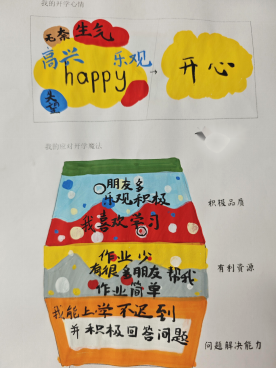 我的开学心情
无奈
生气
高兴
乐观
happy
开心
我的应对开学魔法
朋友多
乐观积极
我喜欢学习
积极品质
作业少
有很多朋友帮我
作业简单
有利资源
我能上学不迟到
并积极回答问题
问题解决能力